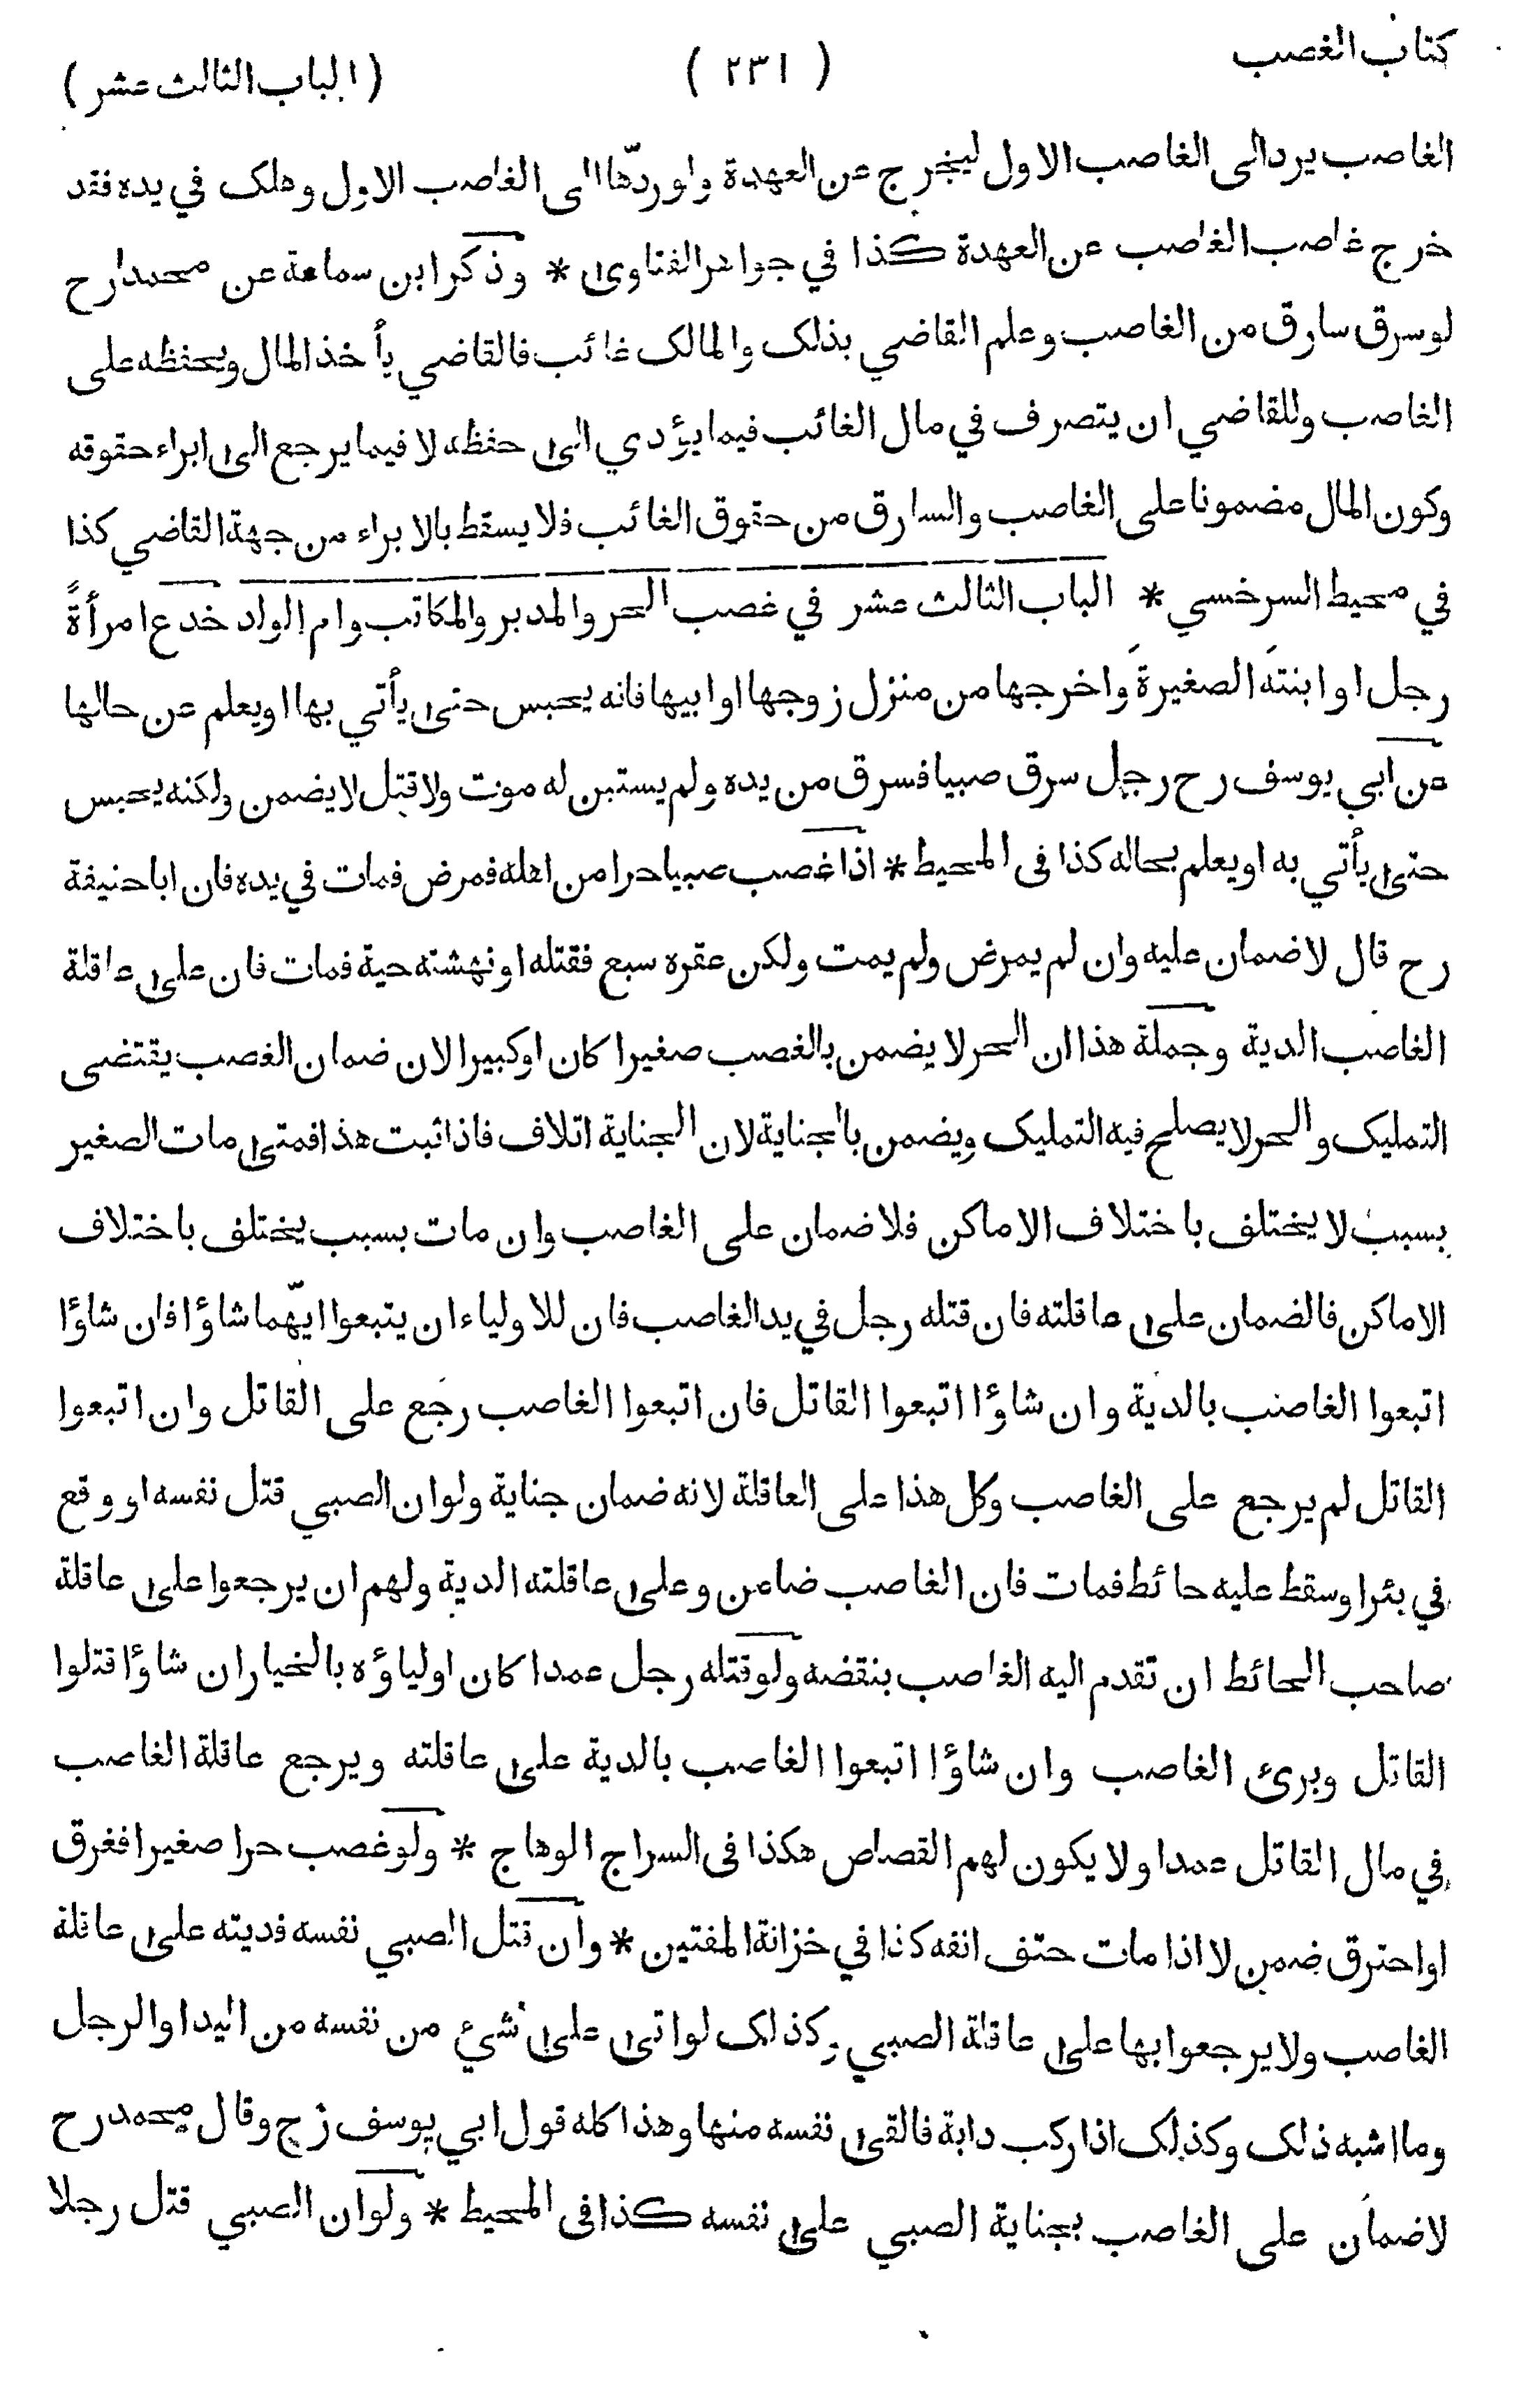 كتاب الغصب ( ٢٣١ ) ( الباب الثالث عشر )
الغاصب يرد الى الغاصب الاول ليخرج عن العهدة ولو ردّها الى الغاصب الاول وهلک في يده فقد
خرج غاصب الغاصب عن العهدة كذا في جواهر الفتاوى * وذكر ابن سماعة عن محمد رح
لو سرق سارق من الغاصب وعلم القاضي بذلک والمالک غائب فالقاضي يأخذ المال ويحفظه على
الغاصب وللقاضي ان يتصرف في مال الغائب فيما يؤدي الى حفظه لا فيما يرجع الى ابراء حقوقه
وكون المال مضمونا على الغاصب والسارق من حقوق الغائب فلا يسقط بالابراء من جهة القاضي كذا
في محيط السرخسي * الباب الثالث عشر في غصب الحر والمدبر والمكاتب وام الولد خدع امرأةً
رجل او ابنتَه الصغيرةَ واخرجها من منزل زوجها او ابيها فانه يحبس حتى يأتي بها او يعلم عن حالها
عن ابي يوسف رح رجل سرق صبيا فسرق من يده ولم يستبن له موت ولا قتل لا يضمن ولكنه يحبس
حتى يأتي به او يعلم بحاله كذا فى المحيط * اذا غصب صبيا حرا من اهله فمرض فمات في يده فان اباحنيفة
رح قال لا ضمان عليه وان لم يمرض ولم يمت ولكن عقره سبع فقتله او نهشته حية فمات فان على عاقلة
الغاصب الدية وجملة هذا ان الحر لا يضمن بالغصب صغيرا كان او كبيرا لان ضمان الغصب يقتضى
التمليک والحر لا يصلح فيه التمليک ويضمن بالجناية لان الجناية اتلاف فاذا ثبت هذا فمتى مات الصغير
بسبب لا يختلف باختلاف الاماكن فلا ضمان على الغاصب وان مات بسبب يختلف باختلاف
الاماكن فالضمان على عاقلته فان قتله رجل في يد الغاصب فان للاولياء ان يتبعوا ايّهما شاؤا فان شاؤا
اتبعوا الغاصب بالدية وان شاؤا اتبعوا القاتل فان اتبعوا الغاصب رجع على القاتل وان اتبعوا
القاتل لم يرجع على الغاصب وكل هذا على العاقلة لانه ضمان جناية ولو ان الصبي قتل نفسه او وقع
في بئر او سقط عليه حائط فمات فان الغاصب ضامن وعلى عاقلته الدية ولهم ان يرجعوا على عاقلة
صاحب الحائط ان تقدم اليه الغاصب بنقضه ولو قتله رجل عمدا كان اولياؤه بالخيار ان شاؤا قتلوا
القاتل وبرئ الغاصب وان شاؤا اتبعوا الغاصب بالدية على عاقلته ويرجع عاقلة الغاصب
في مال القاتل عمدا ولا يكون لهم القصاص هكذا فى السراج الوهاج * ولو غصب حرا صغيرا فغرق
او احترق ضمن لا اذا مات حتف انفه كذا في خزانة المفتين * وان قتل الصبي نفسه فديته على عاقلة
الغاصب ولا يرجعوا بها على عاقلة الصبي وكذلک لو اتى على شيء من نفسه من اليد او الرجل
وما اشبه ذلک وكذلک اذا ركب دابة فالقى نفسه منها وهذا كله قول ابي يوسف رح وقال محمد رح
لا ضمان على الغاصب بجناية الصبي على نفسه كذا فى المحيط * ولو ان الصبي قتل رجلا